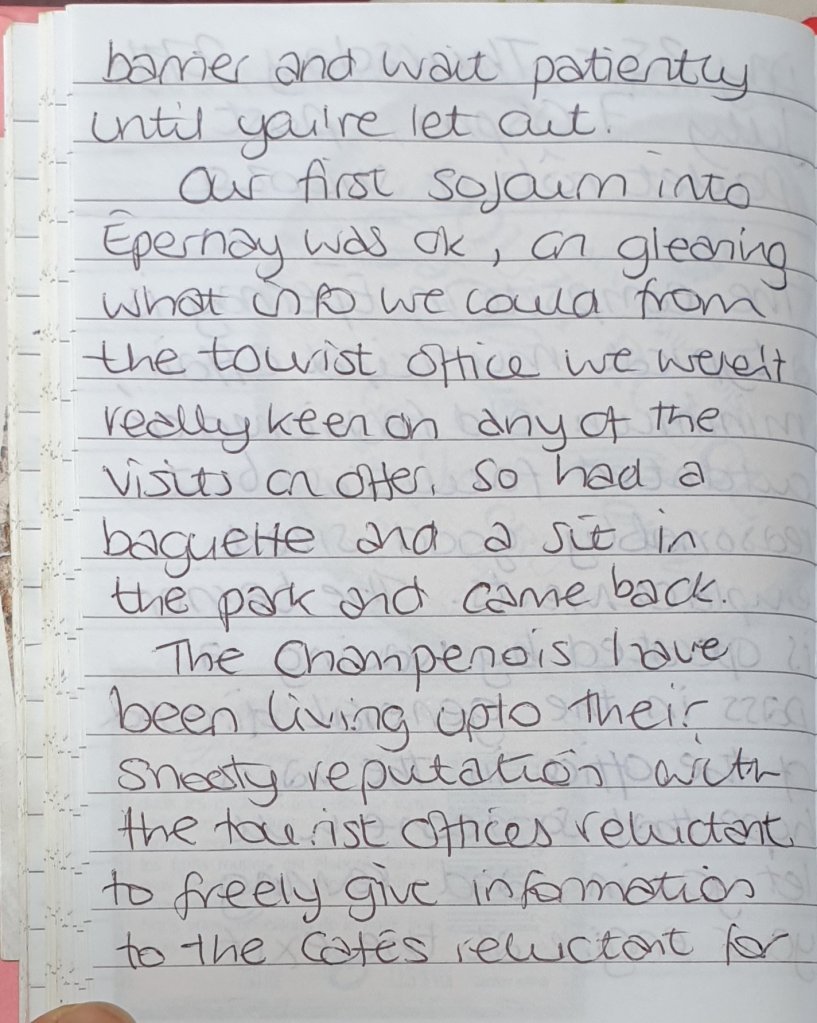 barrier and wait patiently
until you're let out.
Our first sojourn into
Épernay was ok, on gleaning
what info we could from
the tourist office we weren't
really keen on any of the
visits on offer, so had a
baguette and a sit in
the park and came back.
The Champenois have
been living upto their
snooty reputation with
the tourist offices reluctant
to freely give information
to the cafés reluctant for